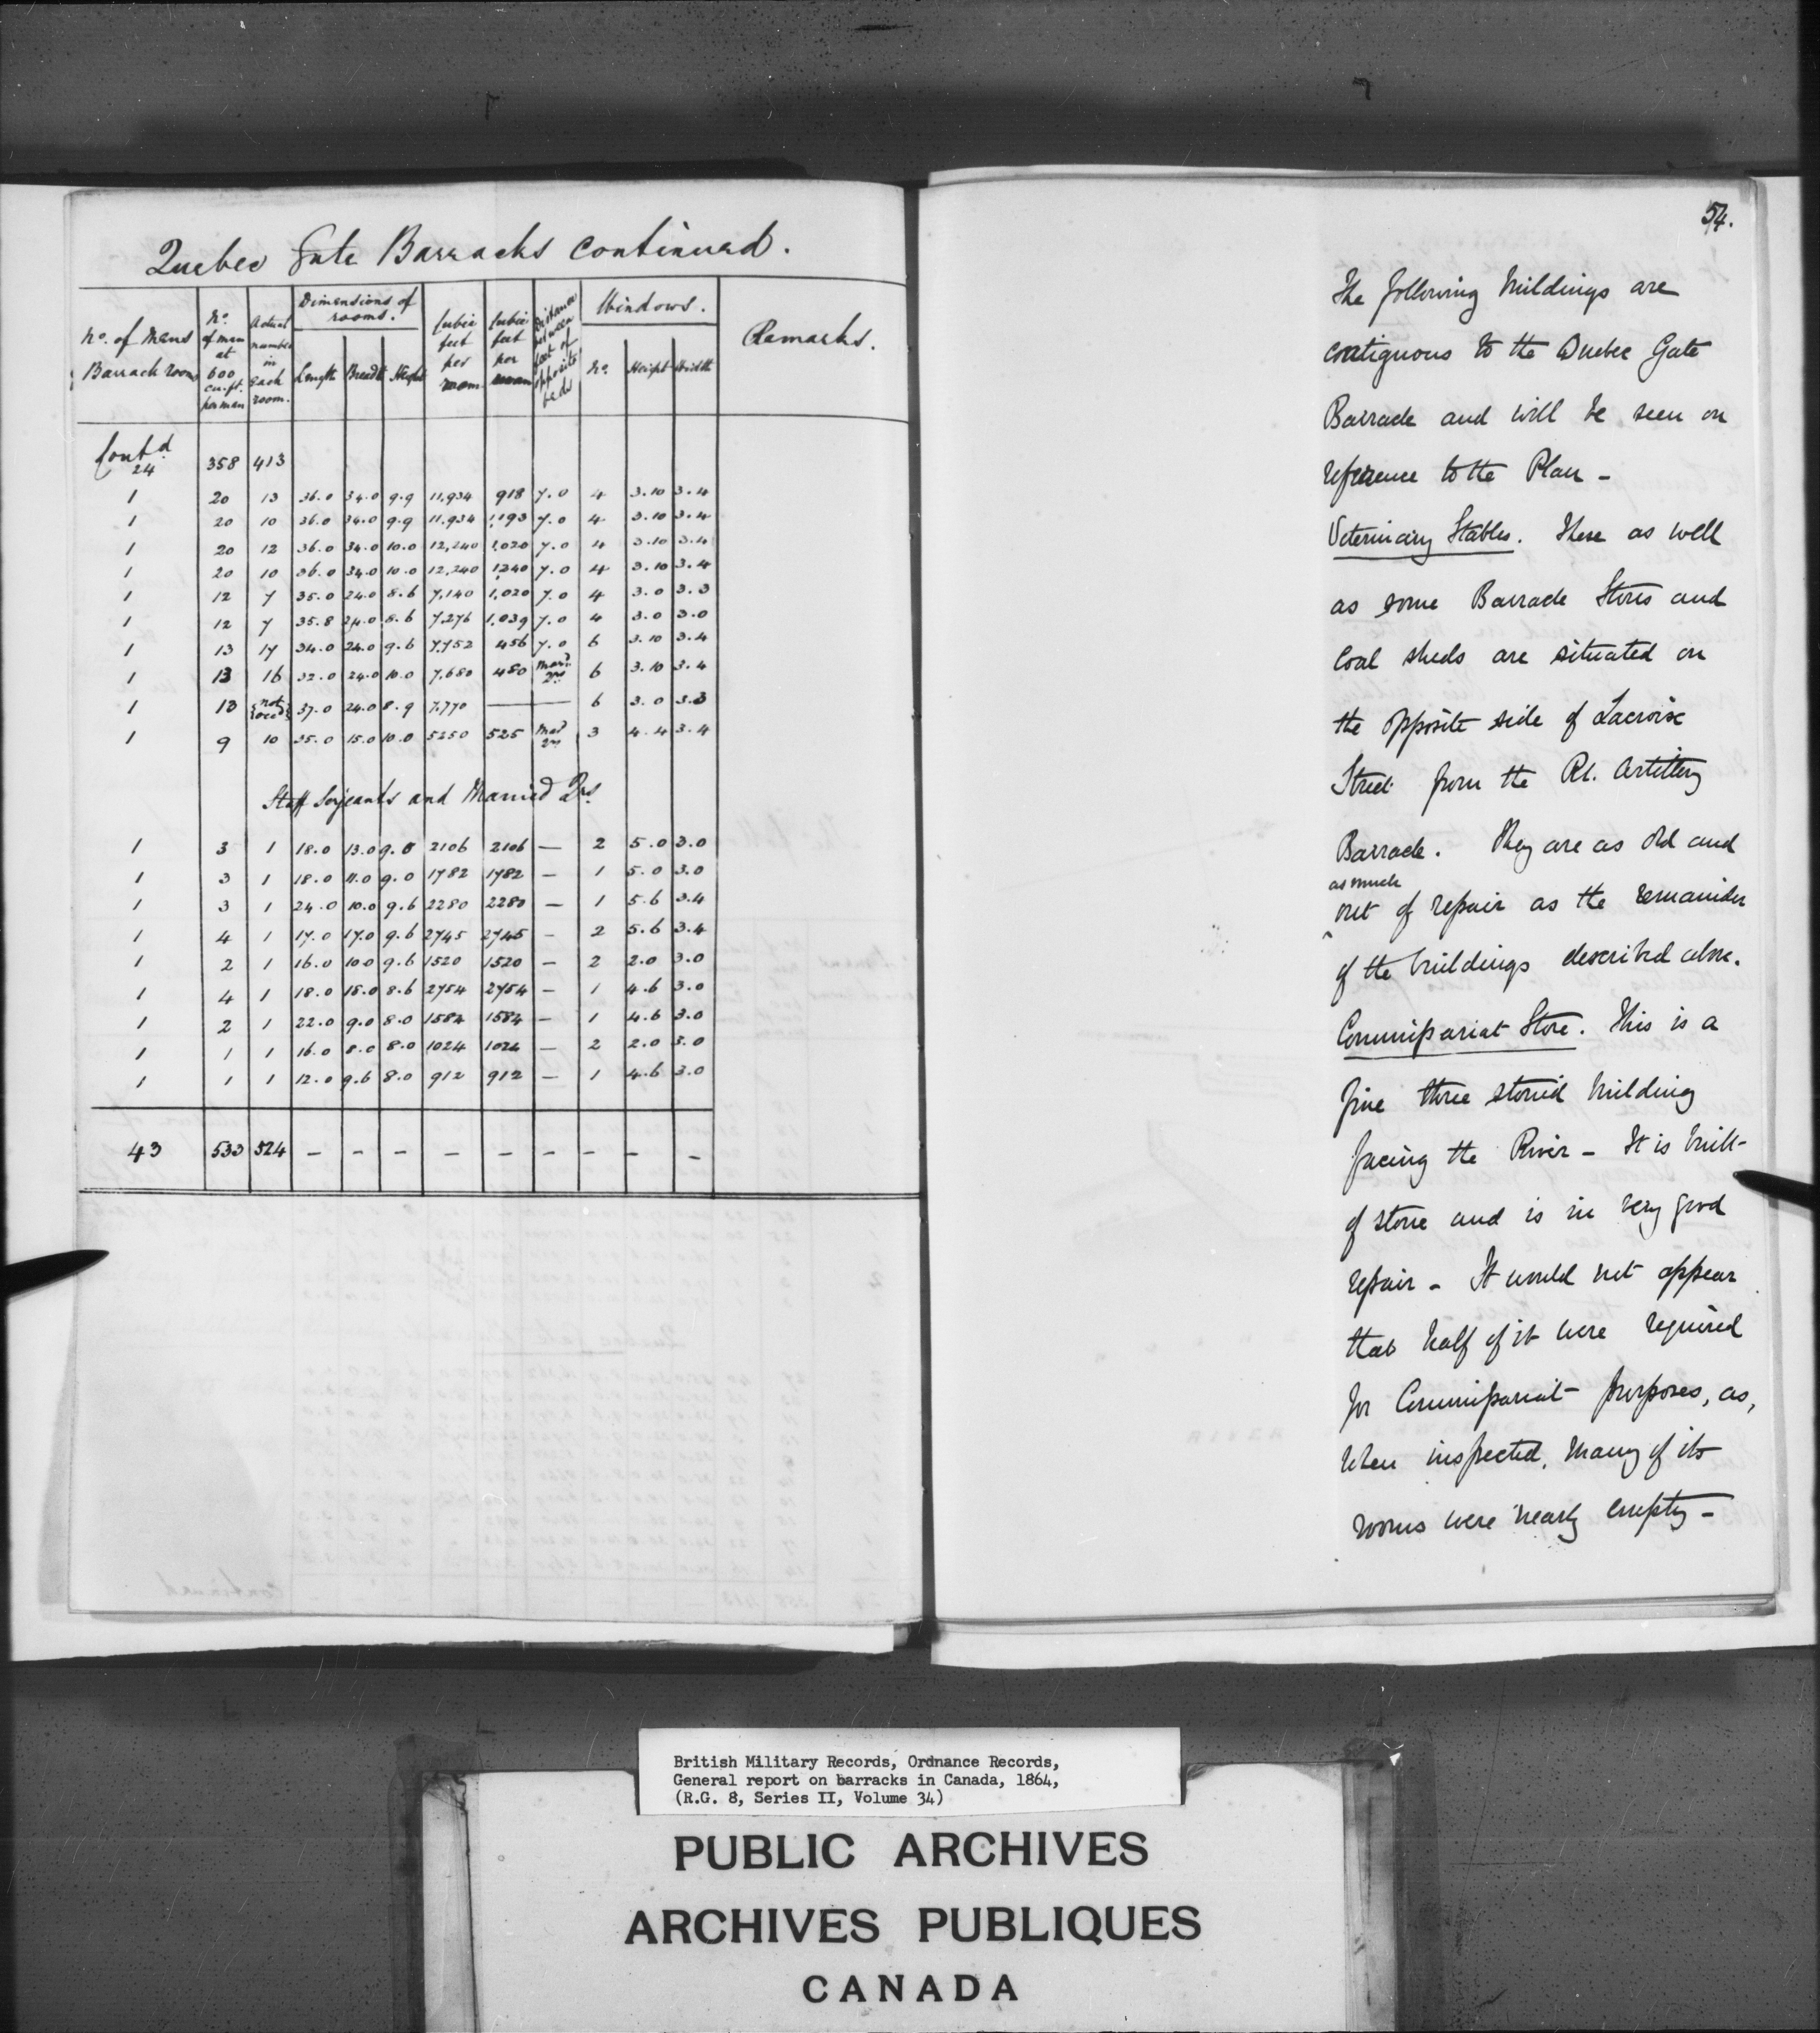 Quebec Gate Barracks continued.
No. of Mens Barrack rooms | No. of men at 600 cu. ft. per man | Actual number in each room. | Dimensions of rooms. Length Breadt Height | Cubic feet per room | Cubic feet per | Distance between feet of opposite beds | Windows. No. Height Width | Remarks.
Contd 24 358 413
1 20 13 36.0 34.0 9.9 11,934 918 7.0 4 3.10 3.4
1 20 10 36.0 34.0 9.9 11,934 1,193 7.0 4 3.10 3.4
1 20 12 36.0 34.0 10.0 12,240 1,020 7.0 4 3.10 3.4
1 20 10 36.0 34.0 10.0 12,240 1,240 7.0 4 3.10 3.4
1 12 7 35.0 24.0 8.6 7,140 1,020 7.0 4 3.0 3.3
1 12 7 35.8 24.0 8.6 7,276 1,039 7.0 4 3.0 3.0
1 13 17 34.0 24.0 9.6 7,752 456 7.0 6 3.10 3.4
1 13 16 32.0 24.0 10.0 7,680 480 Mard Qrs 6 3.10 3.4
1 13 {not occd} 37.0 24.0 8.9 7,770 — 6 3.0 3.3
1 9 10 35.0 15.0 10.0 5250 525 Mad Qrs 3 4.4 3.4
Staff Serjeants and Married Qrs
1 3 1 18.0 13.0 9.0 2106 2106 — 2 5.0 3.0
1 3 1 18.0 11.0 9.0 1782 1782 — 1 5.0 3.0
1 3 1 24.0 10.0 9.6 2280 2280 — 1 5.6 3.4
1 4 1 17.0 17.0 9.6 2745 2745 — 2 5.6 3.4
1 2 1 16.0 10.0 9.6 1520 1520 — 2 2.0 3.0
1 4 1 18.0 18.0 8.6 2754 2754 — 1 4.6 3.0
1 2 1 22.0 9.0 8.0 1584 1584 — 1 4.6 3.0
1 1 1 16.0 8.0 8.0 1024 1024 — 2 2.0 3.0
1 1 1 12.0 9.6 8.0 912 912 — 1 4.6 3.0
43 533 524 — — — — — — — — —
54.
The following buildings are
contiguous to the Quebec Gate
Barrack and will be seen on
reference to the Plan -
Veterinary Stables. These as well
as some Barrack Stores and
Coal sheds are situated on
the opposite side of Lacroix
Street from the Rl. Artillery
Barrack. They are as old and
as much
out of repair as the remainder
of the buildings described above.
Commissariat Store. This is a
fine three storied building
facing the River - It is built
of stone and is in very good
repair - It would not appear
that half of it were required
for Commissariat purposes, as,
when inspected, many of its
rooms were nearly empty -
British Military Records, Ordnance Records,
General report on barracks in Canada, 1864,
(R.G. 8, Series II, Volume 34)
PUBLIC ARCHIVES
ARCHIVES PUBLIQUES
CANADA